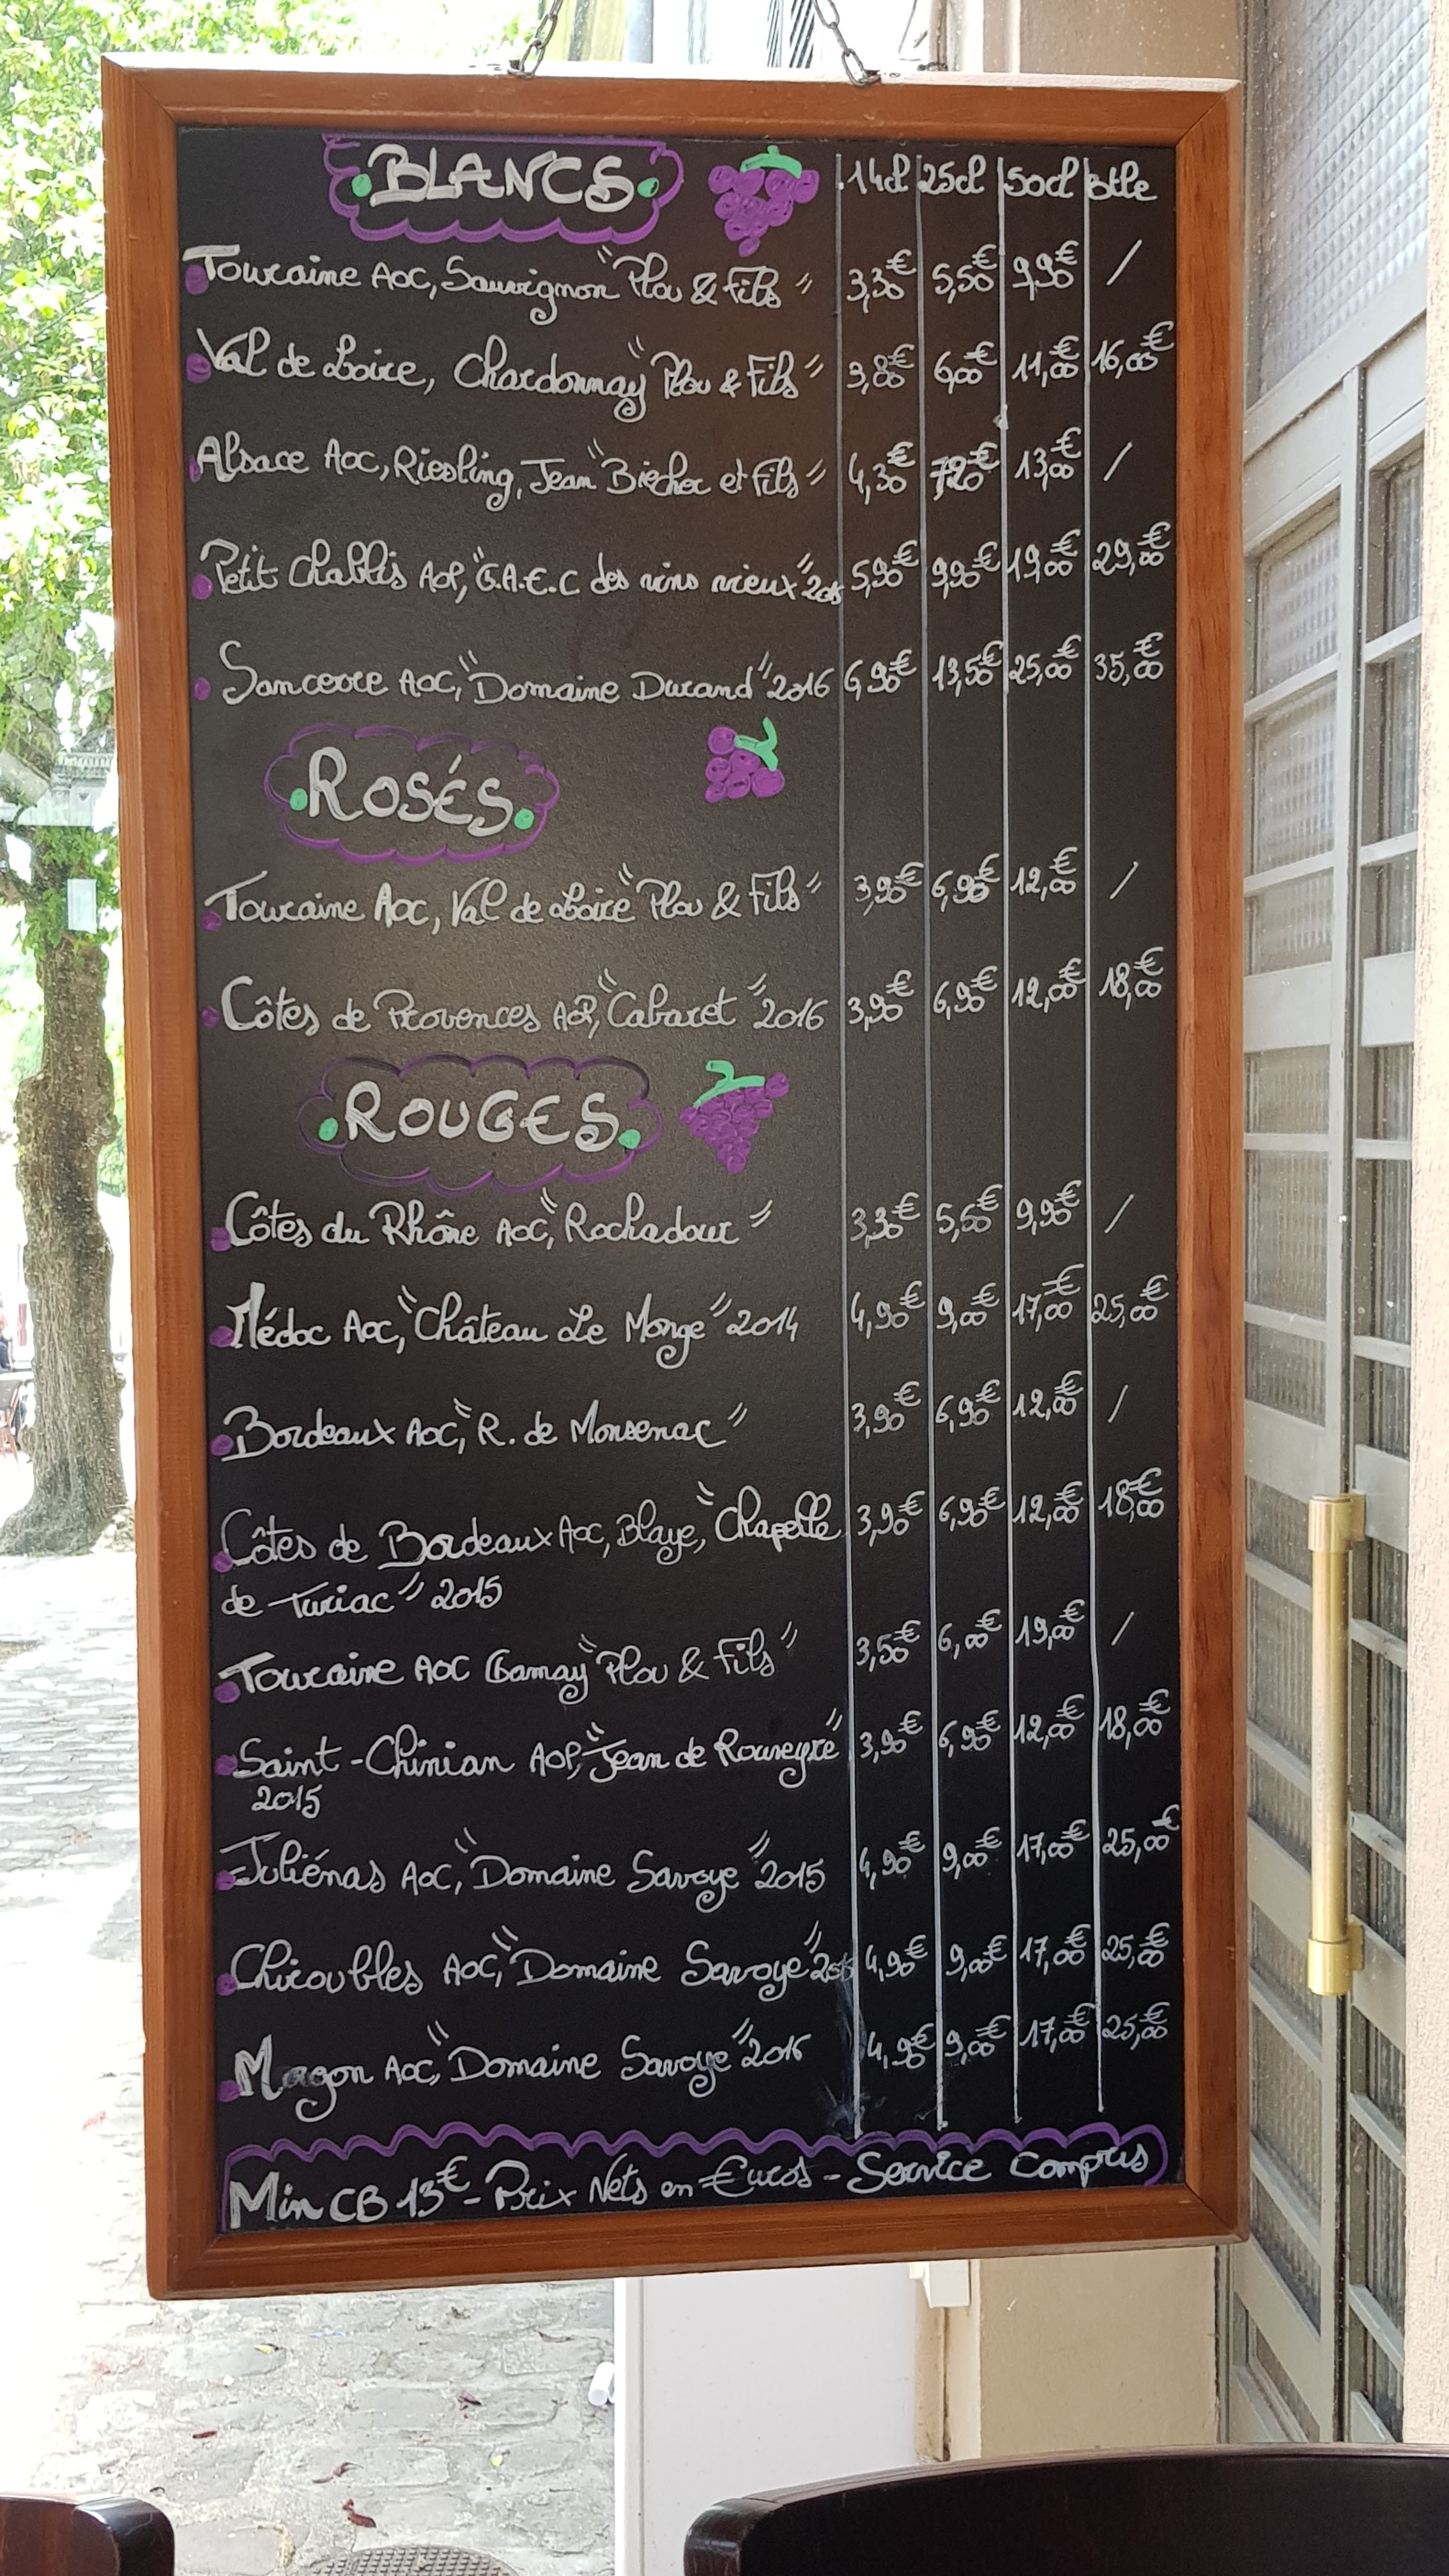 BLANCS 14cl 25cl 50cl Btle
Touraine AOC, Sauvignon "Plou & Fils" 3,30€ 5,50€ 9,90€ /
Val de Loire, Chardonnay "Plou & Fils" 3,80€ 6,00€ 11,00€ 16,00€
Alsace AOC, Riesling, Jean "Biecher et Fils" 4,30€ 7,20€ 13,00€ /
Petit Chablis AOP, "G.A.E.C des vins vieux" 5,90€ 9,90€ 19,00€ 29,00€
Sancerre AOC, "Domaine Durand" 2016 6,90€ 13,50€ 25,00€ 35,00€
ROSÉS
Touraine AOC, Val de Loire "Plou & Fils" 3,90€ 6,90€ 12,00€ /
Côtes de Provences AOP, "Cabaret" 2016 3,90€ 6,90€ 12,00€ 18,00€
ROUGES
Côtes du Rhône AOC, "Rochadour" 3,30€ 5,50€ 9,90€ /
Médoc AOC, "Château Le Monge" 2014 4,90€ 9,00€ 17,00€ 25,00€
Bordeaux AOC, "R. de Monsenac" 3,90€ 6,90€ 12,00€ /
Côtes de Bordeaux AOC, Blaye, "Chapelle 3,90€ 6,90€ 12,00€ 18,00€
de Turiac" 2015
Touraine AOC Gamay "Plou & Fils" 3,50€ 6,00€ 19,00€ /
Saint-Chinian AOP, "Jean de Roueyre" 3,90€ 6,90€ 12,00€ 18,00€
2015
Juliénas AOC, "Domaine Savoye" 2015 4,90€ 9,00€ 17,00€ 25,00€
Chiroubles AOC, "Domaine Savoye" 4,90€ 9,00€ 17,00€ 25,00€
Magon AOC, "Domaine Savoye" 2016 4,90€ 9,00€ 17,00€ 25,00€
Min CB 13€ - Prix Nets en €uros - Service Compris